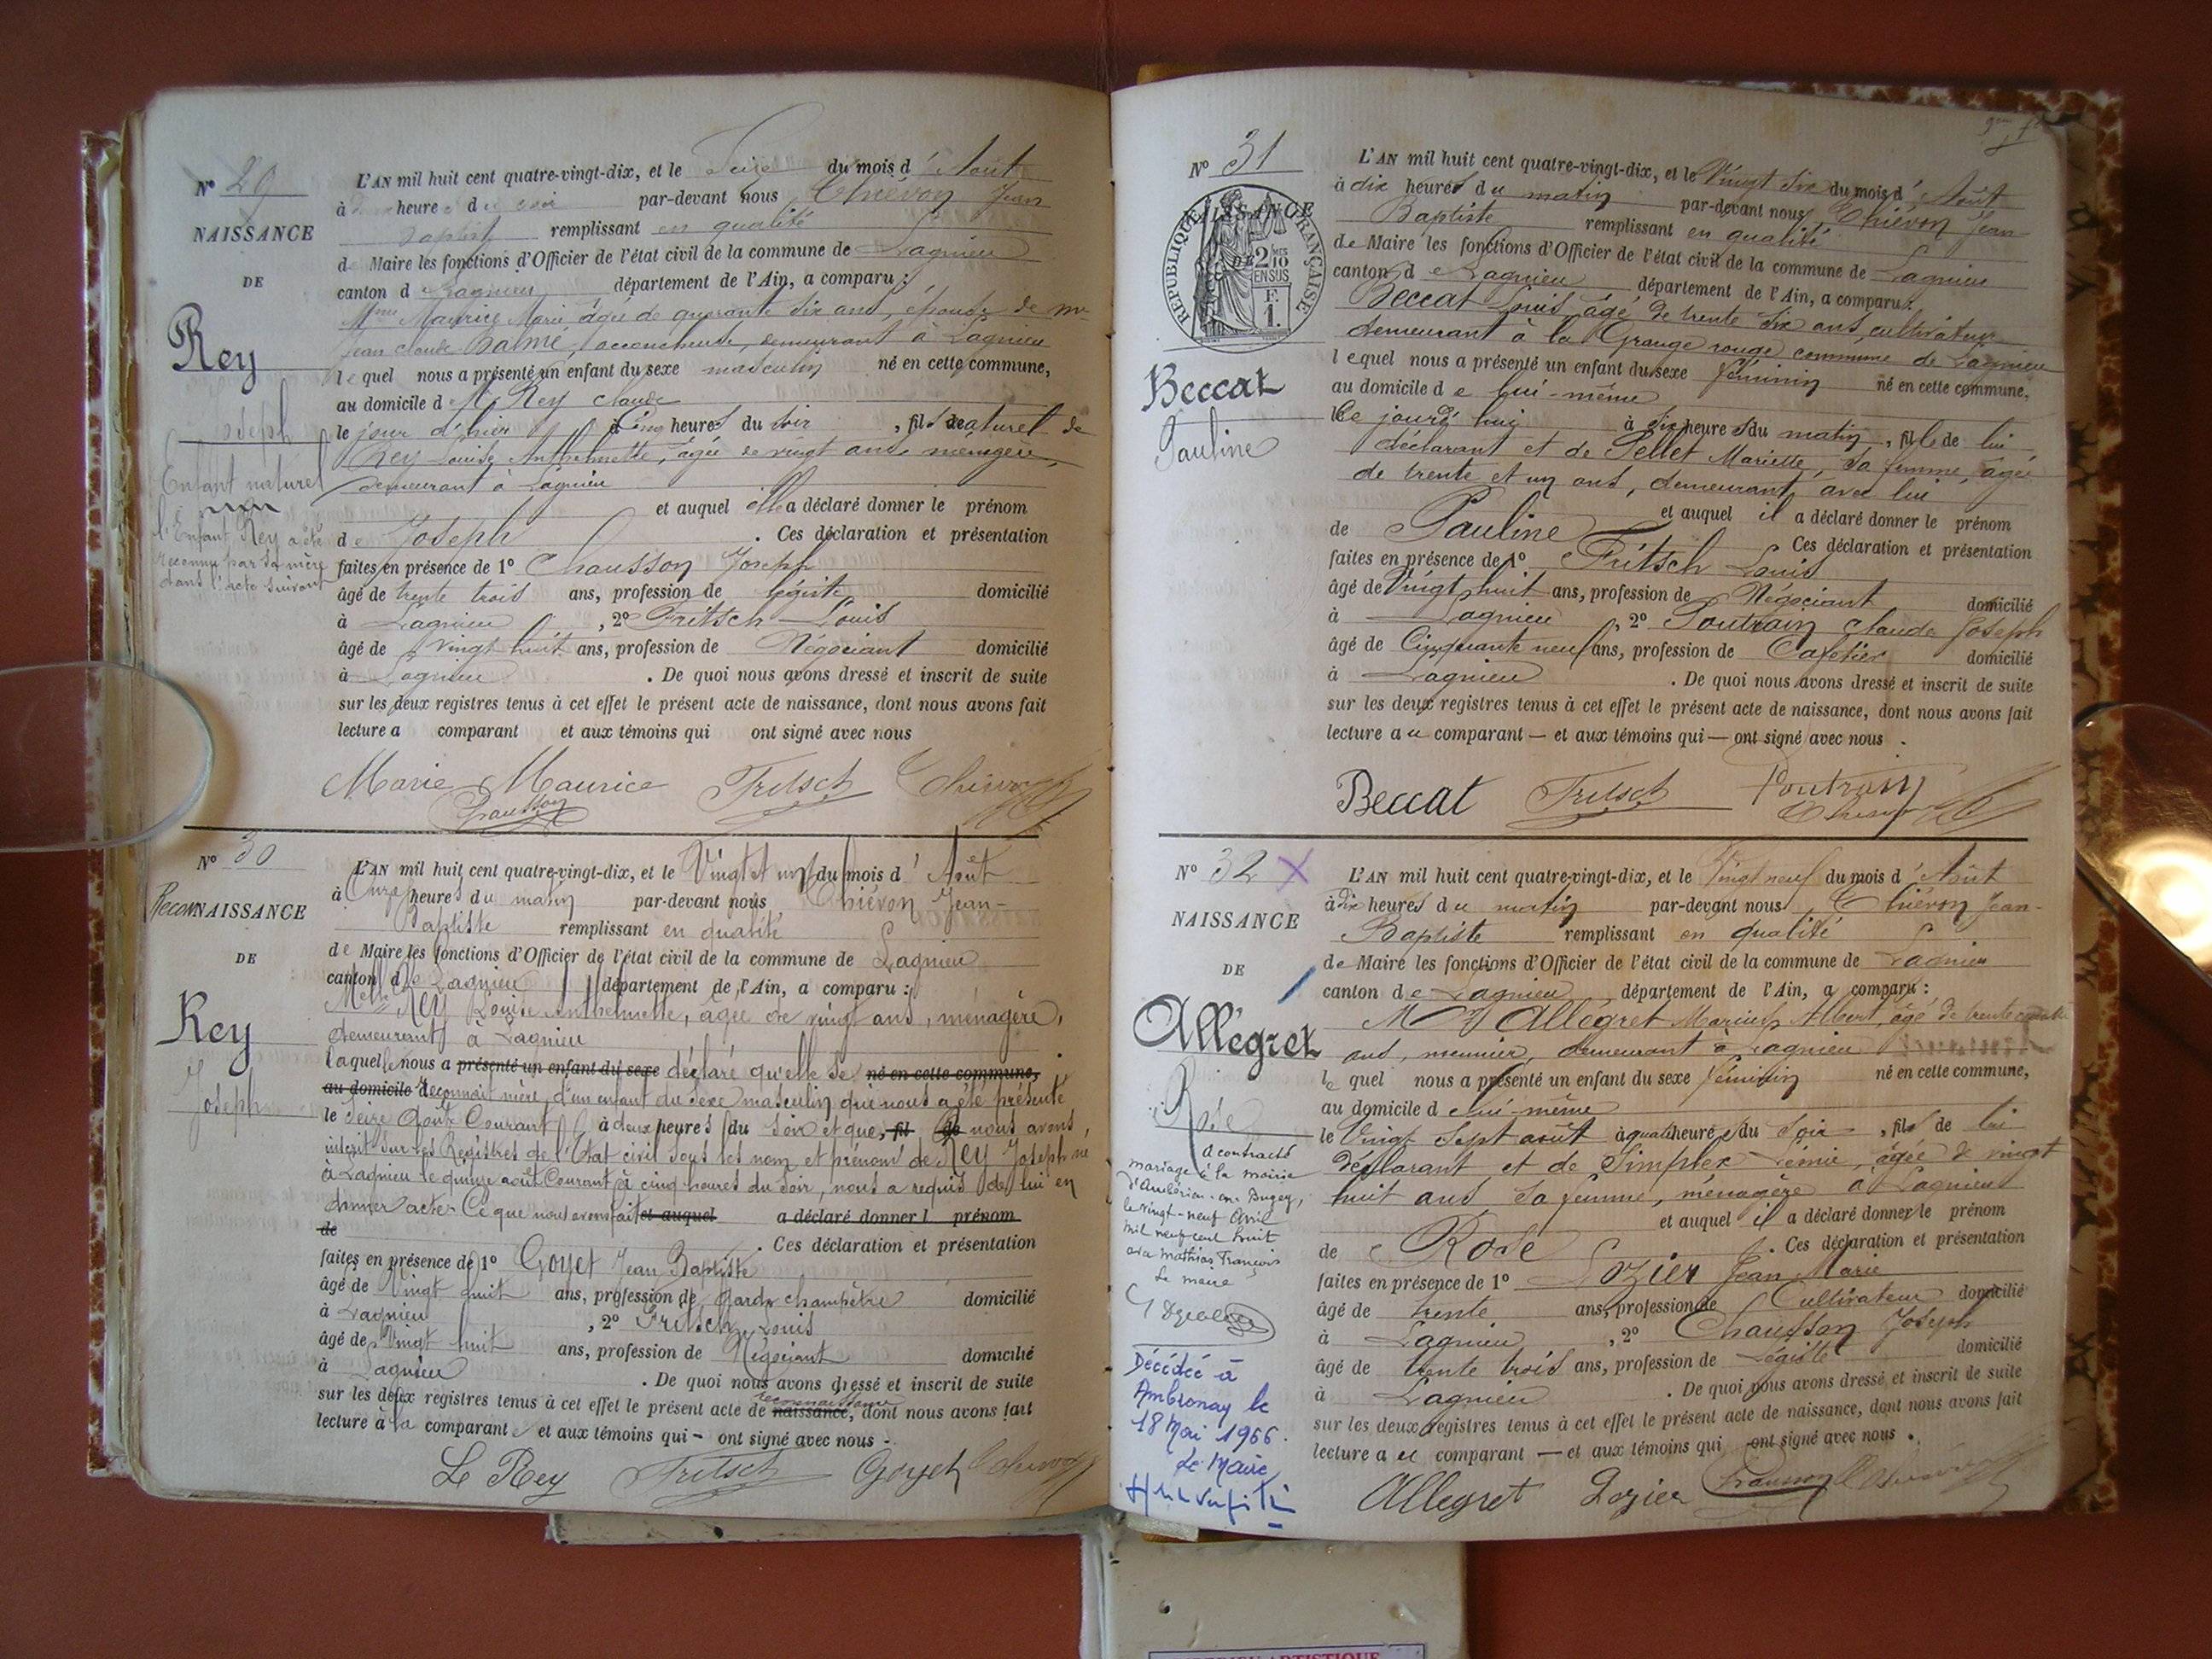 N° 29
NAISSANCE
DE
Rey
Joseph
Enfant naturel
non
l'Enfant Rey a été
reconnu par sa mère
dans l'acte suivant
L'AN mil huit cent quatre-vingt-dix, et le Seize du mois d'Août
à deux heures du soir par-devant nous Thiévon Jean
Baptiste remplissant en qualité
de Maire les fonctions d'Officier de l'état civil de la commune de Lagnieu
canton de Lagnieu département de l'Ain, a comparu :
Mme Maurice Marie âgée de quarante six ans, épouse de mr
Jean claude Balme, accoucheuse, demeurant à Lagnieu
lequel nous a présenté un enfant du sexe masculin né en cette commune,
au domicile de Mr Rey claude
le jour d'hier à Cinq heures du soir, fils naturel de
Rey Louise Anthelmette, âgée de vingt ans, ménagère,
demeurant à Lagnieu
et auquel elle a déclaré donner le prénom
de Joseph. Ces déclaration et présentation
faites en présence de 1° Chausson Joseph
âgé de trente trois ans, profession de légiste domicilié
à Lagnieu, 2° Fritsch Louis
âgé de vingt huit ans, profession de Négociant domicilié
à Lagnieu. De quoi nous avons dressé et inscrit de suite
sur les deux registres tenus à cet effet le présent acte de naissance, dont nous avons fait
lecture a comparant et aux témoins qui ont signé avec nous
Marie Maurice Fritsch Thiévon
Chausson
N° 30
ReconNAISSANCE
DE
Rey
Joseph
L'AN mil huit cent quatre-vingt-dix, et le Vingt et un du mois d'Août
à Onze heures du matin par-devant nous Thiévon Jean-
Baptiste remplissant en qualité
de Maire les fonctions d'Officier de l'état civil de la commune de Lagnieu
canton de Lagnieu département de l'Ain, a comparu :
Melle Rey Louise Anthelmette, âgée de vingt ans, ménagère,
demeurant à Lagnieu
laquelle nous a présenté un enfant du sexe déclaré qu'elle se né en cette commune,
au domicile d reconnait mère, d'un enfant du sexe masculin qui nous a été présenté
le seize Août Courant à deux heures du Soir et que, fil de nous avons
inscrit sur les Registres de l'Etat civil sous les nom et prénoms de Rey Joseph né
à Lagnieu le quinze août Courant à cinq heures du Soir, nous a requis de lui en
donner acte. Ce que nous avons fait et auquel a déclaré donner l prénom
de
. Ces déclaration et présentation
faites en présence de 1° Goyet Jean Baptiste
âgé de Vingt huit ans, profession de Garde champêtre domicilié
à Lagnieu, 2° Fritsch Louis
âgé de Vingt huit ans, profession de Négociant domicilié
à Lagnieu. De quoi nous avons dressé et inscrit de suite
reconnaissance
sur les deux registres tenus à cet effet le présent acte de naissance, dont nous avons fait
lecture à la comparante et aux témoins qui - ont signé avec nous -.
Le Rey Fritsch Goyet Thiévon
N° 31
NAISSANCE
DE
REPUBLIQUE FRANÇAISE
2 10MES
EN SUS
F.
1.
Beccat
Pauline
L'AN mil huit cent quatre-vingt-dix, et le Vingt six du mois d'Août
à dix heures du matin par-devant nous Thiévon Jean
Baptiste remplissant en qualité
de Maire les fonctions d'Officier de l'état civil de la commune de Lagnieu
canton de Lagnieu département de l'Ain, a comparu :
Beccat Louis, âgé de trente six ans, cultivateur
demeurant à la Grange rouge commune de Lagnieu
lequel nous a présenté un enfant du sexe féminin né en cette commune,
au domicile de lui-même
le jourd'hui à six heures du matin, fille de lui
déclarant et de Pellet Mariette, sa femme, âgée
de trente et un ans, demeurant avec lui
et auquel il a déclaré donner le prénom
de Pauline Ces déclaration et présentation
faites en présence de 1° Fritsch Louis
âgé de Vingt huit ans, profession de Négociant domicilié
à Lagnieu, 2° Poutrain Claude Joseph
âgé de Cinquante neuf ans, profession de Cafetier domicilié
à Lagnieu. De quoi nous avons dressé et inscrit de suite
sur les deux registres tenus à cet effet le présent acte de naissance, dont nous avons fait
lecture au comparant — et aux témoins qui — ont signé avec nous.
Beccat Fritsch Poutrain
Thiévon
N° 32 X
NAISSANCE
DE
Allégret
Rose
a contracté
mariage à la mairie
d'Ambérieu-en-Bugey,
le vingt-neuf Avril
mil neuf cent huit
avec Mathias François
Le maire
Décédée à
Ambronay le
18 Mai 1966.
Le Maire,
L'AN mil huit cent quatre-vingt-dix, et le Vingt neuf du mois d'Août
à dix heures du matin par-devant nous Thiévon Jean-
Baptiste remplissant en qualité
de Maire les fonctions d'Officier de l'état civil de la commune de Lagnieu
canton de Lagnieu département de l'Ain, a comparu :
Mr Allégret Marius Albert, âgé de trente
ans, meunier, demeurant à Lagnieu
lequel nous a présenté un enfant du sexe féminin né en cette commune,
au domicile de lui-même
le Vingt Sept août à quatre heures du Soir, fils de lui
déclarant et de Simplex Rémie, âgée de vingt
huit ans, sa femme, ménagère à Lagnieu
et auquel il a déclaré donner le prénom
de Rose. Ces déclaration et présentation
faites en présence de 1° Lozier Jean Marie
âgé de trente ans, profession de Cultivateur domicilié
à Lagnieu, 2° Chausson Joseph
âgé de trente trois ans, profession de Légiste domicilié
à Lagnieu. De quoi nous avons dressé et inscrit de suite
sur les deux registres tenus à cet effet le présent acte de naissance, dont nous avons fait
lecture au comparant — et aux témoins qui ont signé avec nous.
Allegret Lozier Chausson Thiévon